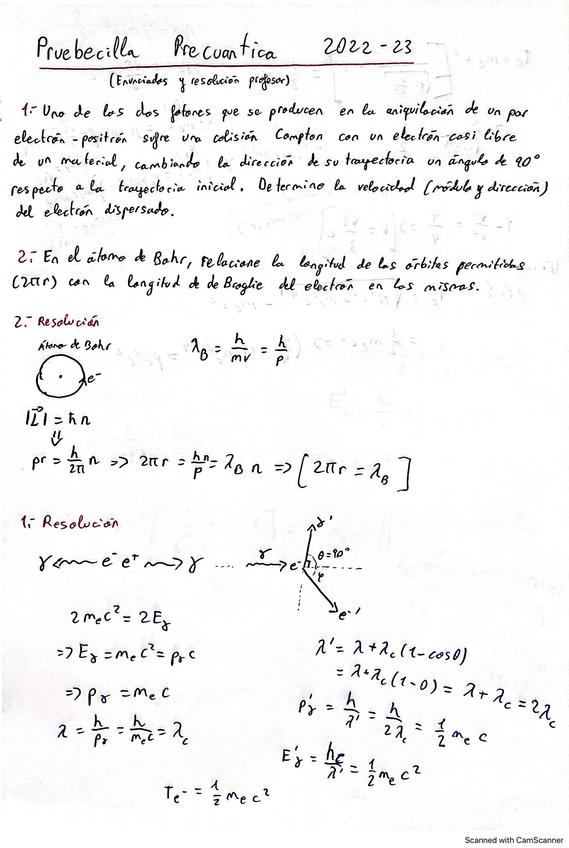 Pruebecilla Precuantica 2022-23
(Enunciados y resolución profesor)
1.- Uno de los dos fotones que se producen en la aniquilación de un par
electrón-positrón sufre una colisión Compton con un electrón casi libre
de un material, cambiando la dirección de su trayectoria un ángulo de 90°
respecto a la trayectoria inicial. Determine la velocidad (módulo y dirección)
del electrón dispersado.
2.- En el átomo de Bohr, relacione la longitud de las órbitas permitidas
(2πr) con la longitud de de Broglie del electrón en las mismas.
2.- Resolución
Átomo de Bohr
e-
λ_B = h/mv = h/p
|L⃗| = ħn
⇓
pr = h/2π n => 2πr = hn/p = λ_B n => [2πr = λ_B]
1.- Resolución
γ <~~ e- e+ ~~> γ .... γ e- γ' θ=90° φ e-'
2m_e c² = 2E_γ
=> E_γ = m_e c² = p_γ c
=> p_γ = m_e c
λ = h/p_γ = h/m_e c = λ_c
λ' = λ + λ_c (1-cosθ)
= λ + λ_c (1-0) = λ + λ_c = 2λ_c
p'_γ = h/λ' = h/2λ_c = 1/2 m_e c
E'_γ = hc/λ' = 1/2 m_e c²
T_e- = 1/2 m_e c²
Scanned with CamScanner